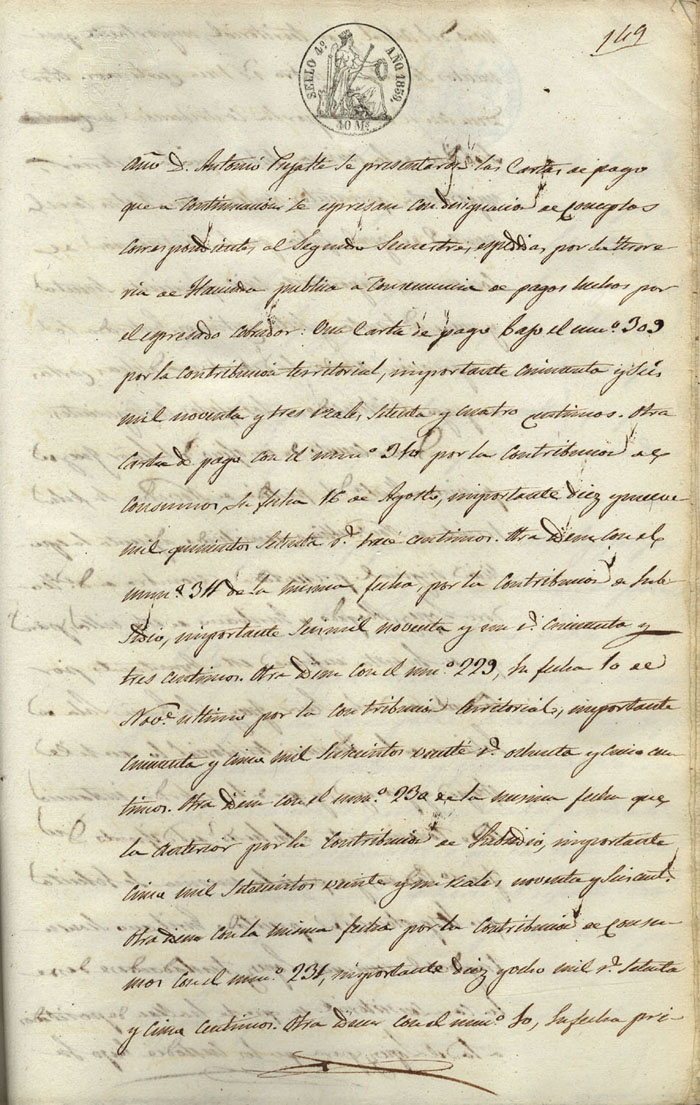 149
SELLO 4º AÑO 1859.
40 Ms
año D. Antonio se presentaron las Cartas de pago
que a Continuacion se espresan con designacion de conceptos
correspondientes al Segundo Semestre, espedidas por la Tesore-
ria de Hacienda publica a Consecuencia de pagos hechos por
el espresado cobrador: Una Carta de pago bajo el numº 309
por la Contribucion territorial, importante cincuenta y seis
mil noventa y tres reales, setenta y cuatro centimos. Otra
carta de pago con el numº 310 por la Contribucion de
Consumos, su fecha 16 de Agosto, importante diez y nueve
mil quinientos setenta rs trece centimos. Otra idem con el
numº 311 de la misma fecha, por la Contribucion de Sub-
sidio, importante seis mil noventa y un rs cincuenta y
tres centimos. Otra idem con el numº 229, su fecha 10 de
Nove ultimo por la contribucion territorial, importante
cincuenta y cinco mil seiscientos veinte rs ochenta y cinco cen-
timos. Otra idem con el numº 230 de la misma fecha que
la anterior por la Contribucion de Subsidio, importante
cinco mil setecientos veinte y un reales noventa y seis cent.
Otra idem con la misma fecha por la Contribucion de consu-
mos con el numº 231, importante diez y ocho mil rs setenta
y cinco centimos. Otra idem con el numº 10, su fecha pri-